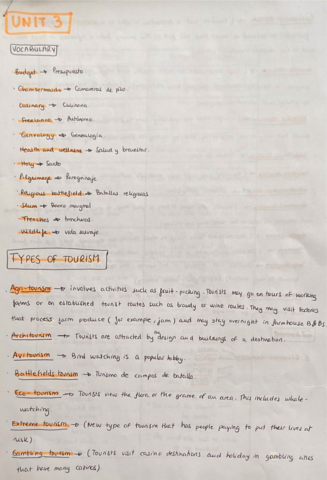 UNIT 3
VOCABULARY
· Budget → Presupuesto
· Chambermaids → Camareras de piso
· Culinary → Culinaria
· Freelance → Autónomo
· Genealogy → Genealogía
· Health and wellness → Salud y bienestar
· Holy → Santo
· Pilgrimage → Peregrinaje
· Religious battlefield → Batallas religiosas
· Slum → Barrio marginal
· Trenches → trincheras
· Wildlife → vida salvaje
TYPES OF TOURISM
· Agri-tourism → involves activities such as fruit-picking. Tourists may go on tours of working
farms or on established tourist routes such as brandy or wine routes. They may visit factories
that process farm produce (for example, jam) and may stay overnight in farmhouse B&Bs
· Architourism → Tourists are attracted by design and buildings of a destination.
· Avitourism → Bird watching is a popular hobby.
· Battlefields tourism → Turismo de campos de batalla
· Eco-tourism → Tourists view the flora or the of an area. This includes whale-
watching.
· Extreme tourism → (New type of tourism that has people paying to put their lives at
risk)
· Gambling tourism → (Tourists visit casino destinations and holiday in gambling cities
that have many casinos)